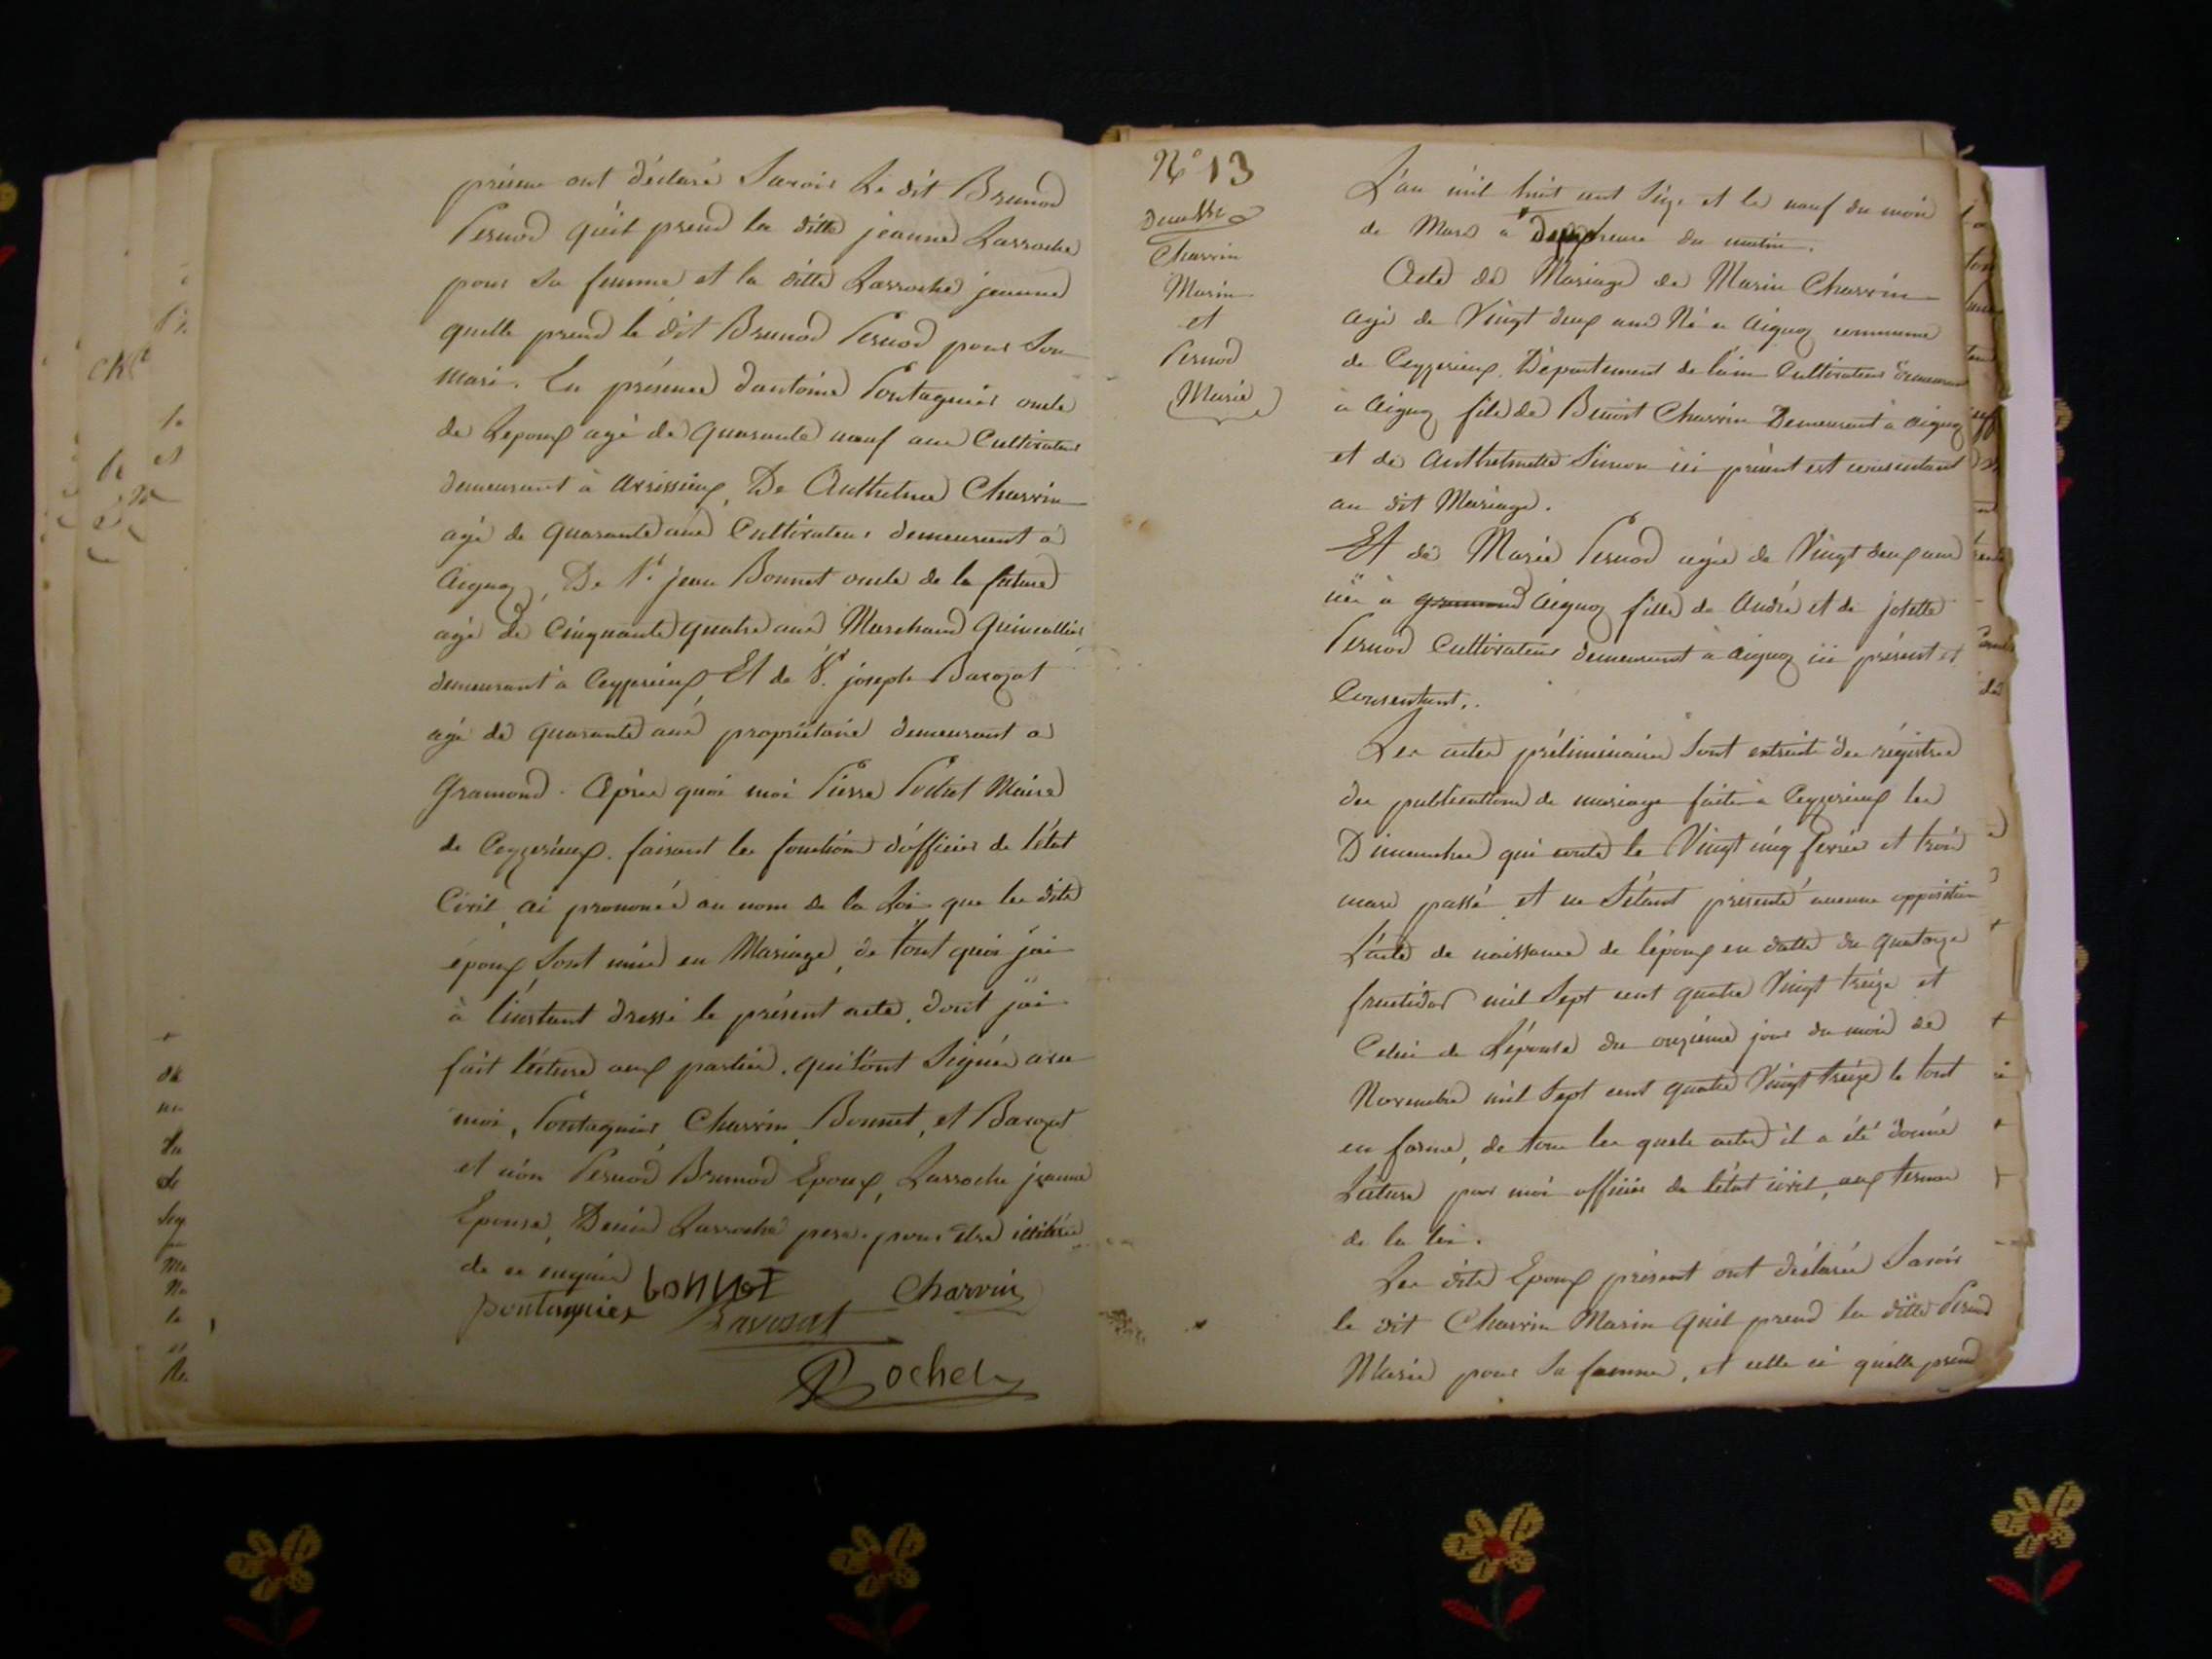 présens ont déclaré Savoir Le dit Brunod
Pernod qu'il prend la ditte jeanne Larroche
pour sa femme et la ditte Larroche jeanne
quelle prend le dit Brunod Pernod pour Son
mari. En présence dantoine Pontagnier oncle
de Lepoux agé de quarante neuf ans Cultivateur
demeurant à arvissieux, De Anthelme Charvin
agé de quarante ans Cultivateur demeurant à
aignoz, De Sr. jean Bonnet oncle de la future
agé de Cinquante quatre ans Marchand Quincallier
demeurant à Ceyzerieux, Et de Sr. joseph Barozat
agé de quarante ans propriétaire demeurant a
gramond. Après quoi moi Pierre Rochet Maire
de Ceyzerieux. faisant les fonctions d'officier de l'état
Civil, ai prononcé au nom de la Loi que les dits
époux Sont unis en Mariage, de tout quoi j'ai
à l'instant dressé le présent acte, dont j'ai
fait lecture aux parties, qui l'ont Signée avec
moi, Pontagnier, Charvin, Bonnet, et Barozat
et non Pernod Brunod Epoux, Larroche jeanne
Epouse, Denis Larroche pere, pour être illitérés
de ce enquis
bonnet Charvin
pontagnier Barozat
Rochet
N° 13
Charvin
Marin
et
Pernod
Marie
L'an mil huit cent Seize et le neuf du mois
de Mars à Dix heure du matin.
Acte de Mariage de Marin Charvin
agé de Vingt deux ans Né a Aignoz commune
de Ceyzerieux. Département de l'ain Cultivateur demeurant
à Aignoz fils de Benoit Charvin Demeurant à Aignoz
et de Anthelmette Simon ici présent est consentant
au dit Mariage.
Et de Marie Pernod agée de Vingt deux ans
née à gramond Aignoz fille de André et de josette
Pernod Cultivateur demeurant à Aignoz ici présent et
Consentant.
Les actes préliminaires Sont extraits des régistres
des publications de mariage faites à Ceyzerieux les
Dimanches qui conte le Vingt cinq fevrier et trois
mars passé et ne S'étant présenté aucune opposition
L'acte de naissance de l'époux en datte du quatorze
fructidor mil Sept cent quatre Vingt treize et
Celui de L'épouse du onzième jour du mois de
Novembre mil Sept cent quatre Vingt treize le tout
en forme, de tous les quels actes il a été donné
Lecture par moi officier de l'état civil, aux termes
de la loi.
Les dits Epoux présent ont déclarés Savoir
le dit Charvin Marin qu'il prend la ditte Pernod
Marie pour Sa femme, et celle ci qu'elle prend